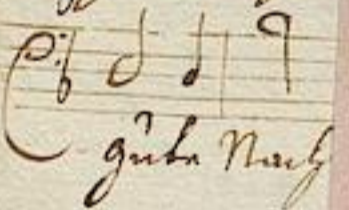 gute Nach